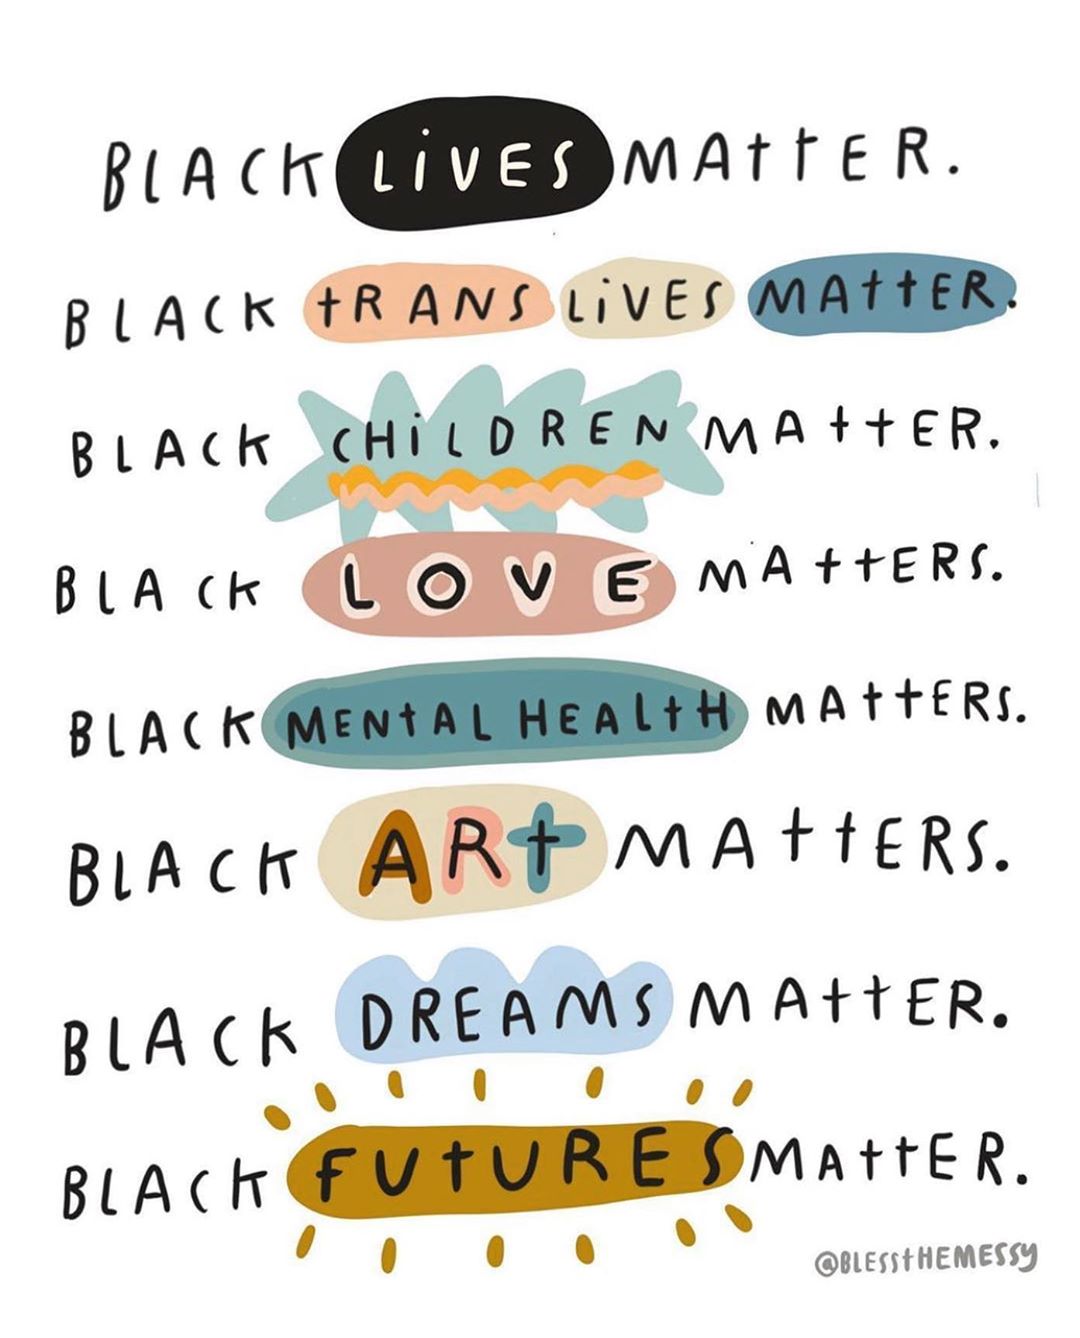 BLACK LIVES MATTER.
BLACK TRANS LIVES MATTER.
BLACK CHILDREN MATTER.
BLACK LOVE MATTERS.
BLACK MENTAL HEALTH MATTERS.
BLACK ART MATTERS.
BLACK DREAMS MATTER.
BLACK FUTURES MATTER.
@BLESSTHEMESSY